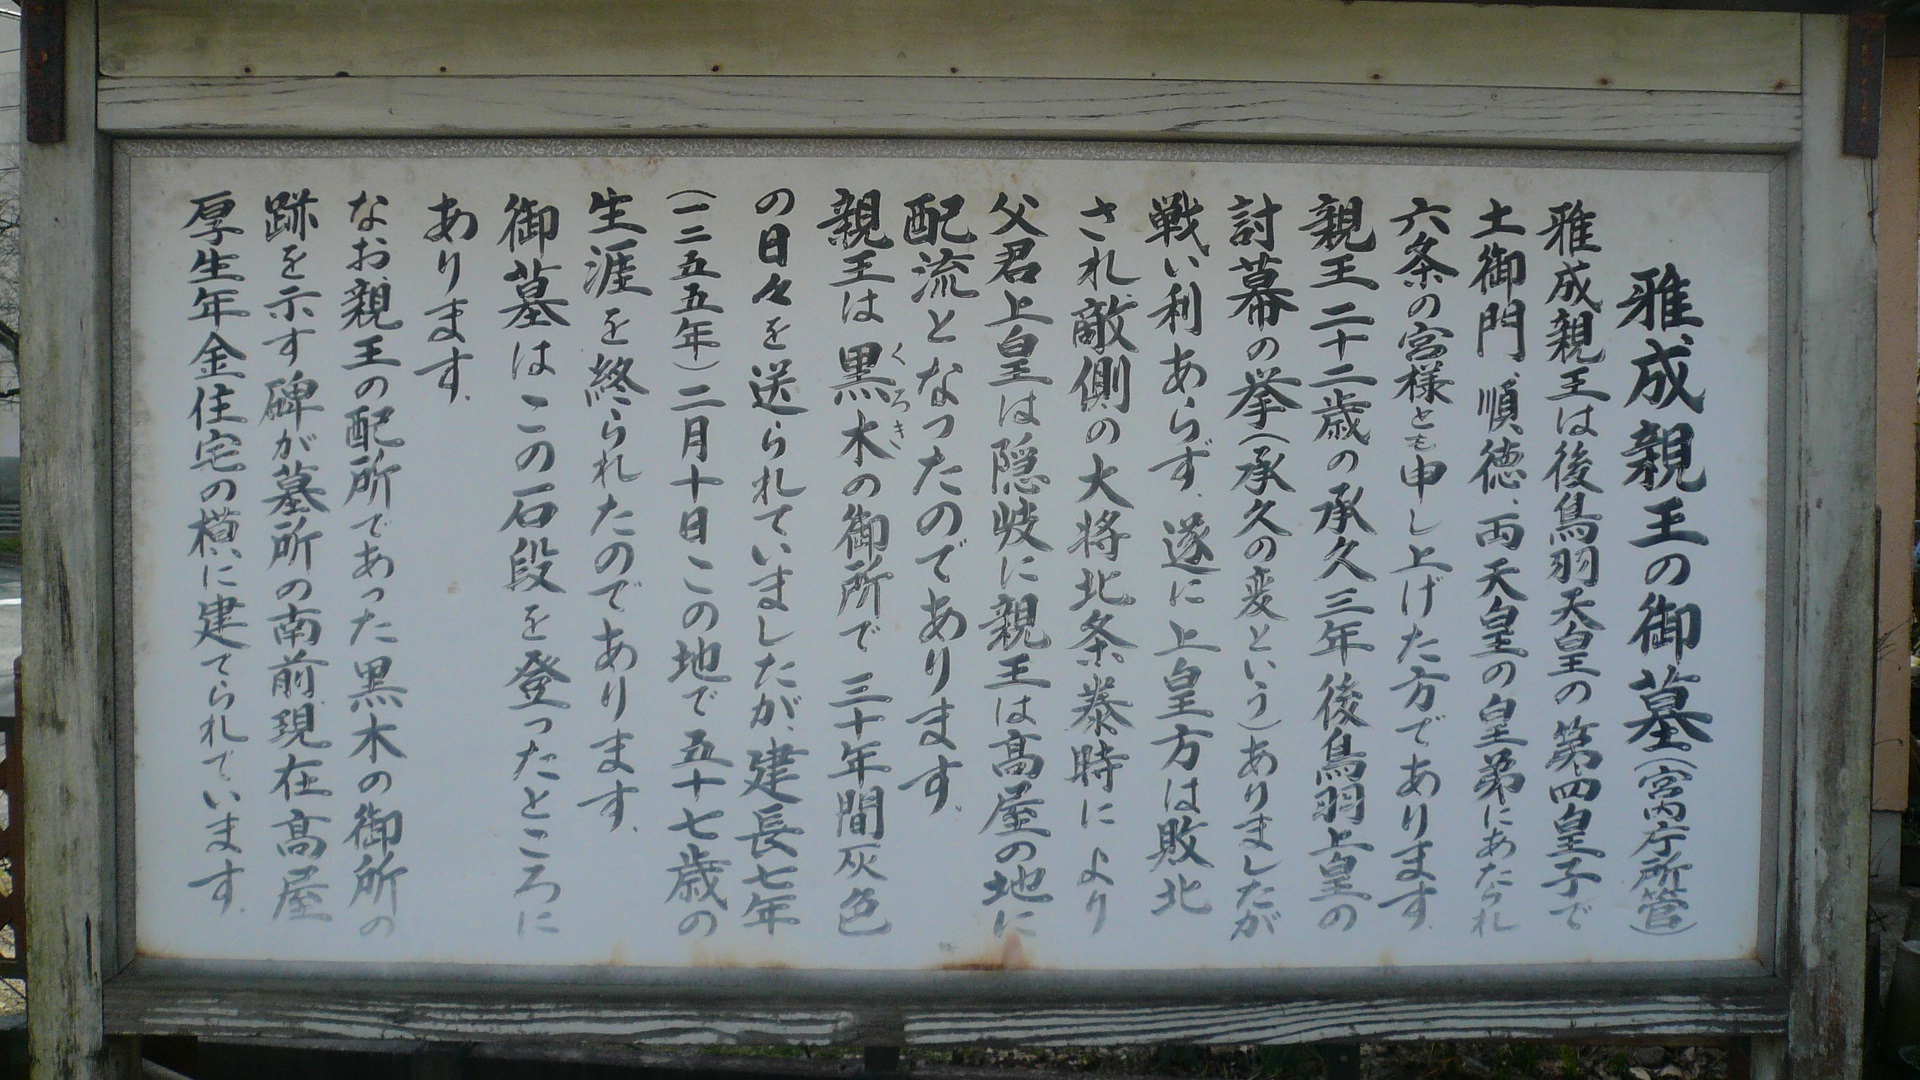 雅成親王の御墓(宮内庁所管)
雅成親王は後鳥羽天皇の第四皇子で
土御門、順徳、両天皇の皇弟にあたられ
六条の宮様とも申し上げた方であります。
親王二十二歳の承久三年後鳥羽上皇の
討幕の挙(承久の変という)ありましたが
戦い利あらず、遂に上皇方は敗北
され、敵側の大将北条泰時により
父君上皇は隠岐に親王は高屋の地に
配流となったのであります。
親王は黒木の御所で三十年間灰色
くろき
の日々を送られていましたが、建長七年
(一二五五年)二月十日この地で五十七歳の
生涯を終られたのであります。
御墓はこの石段を登ったところに
あります。
なお、親王の配所であった黒木の御所の
跡を示す碑が墓所の南前現在高屋
厚生年金住宅の横に建てられています。